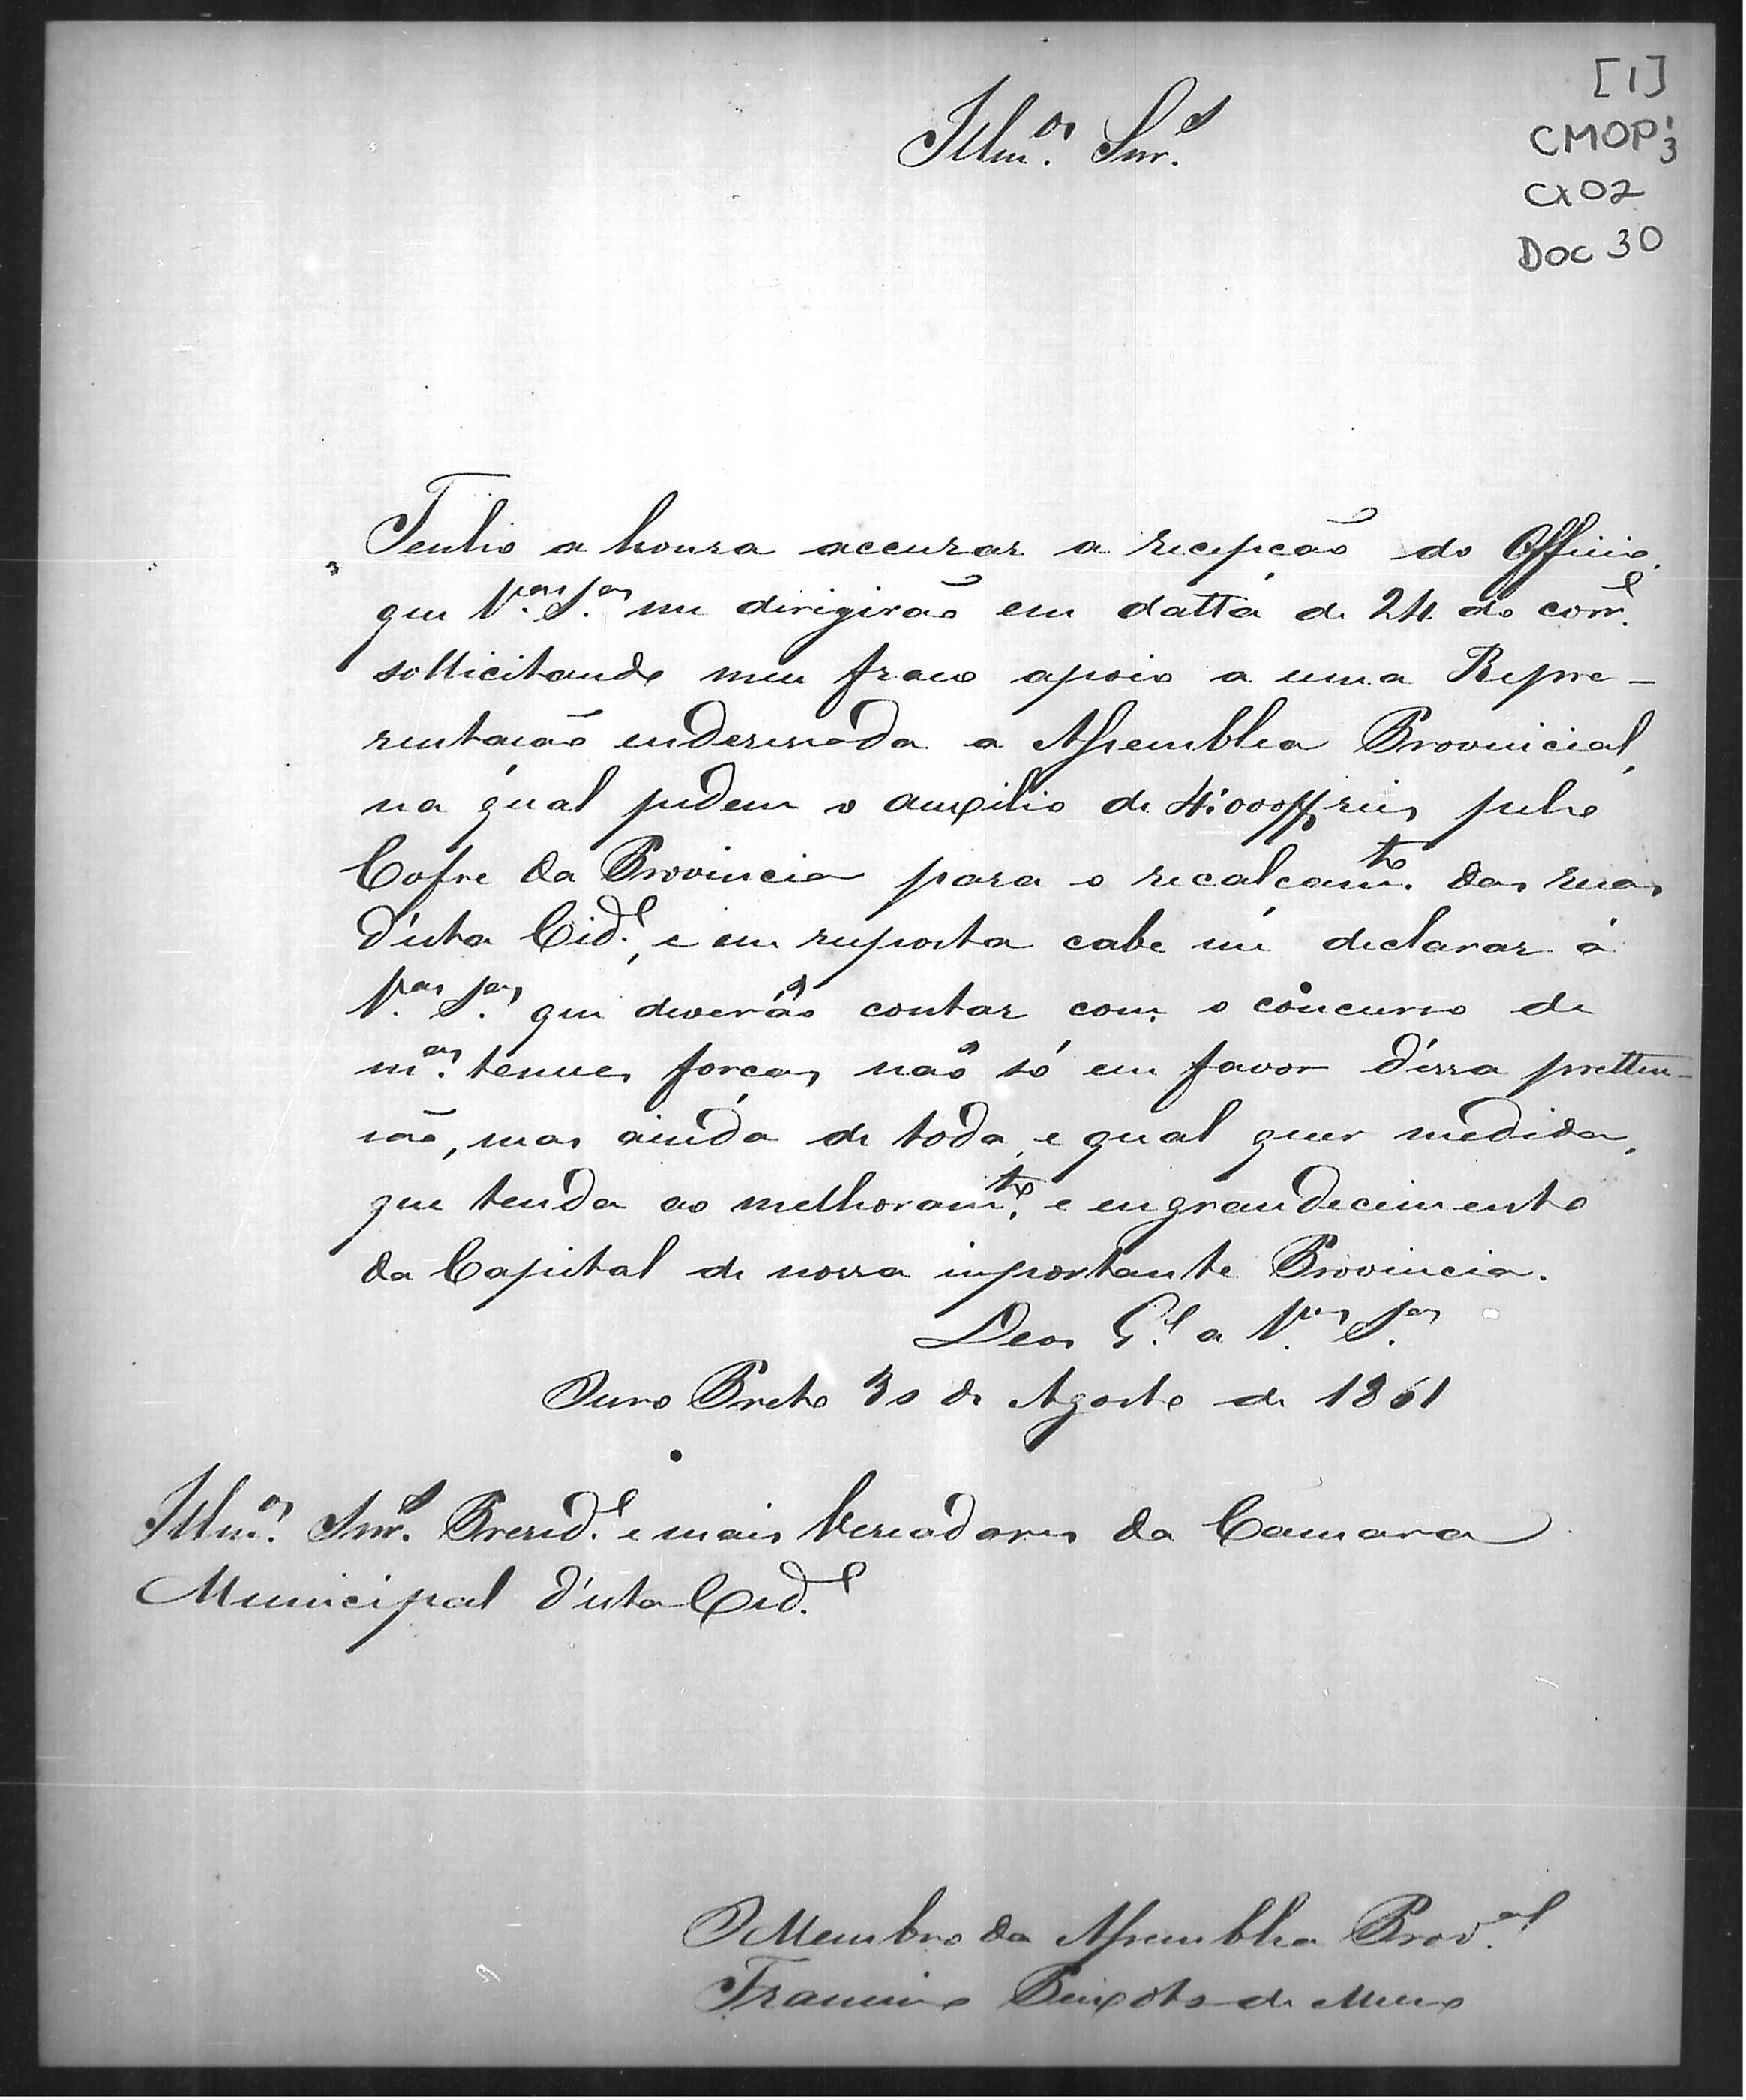 [1]
CMOP 1/3
CX02
DOC 30
Illm.os Snr.s
Tenho a honra accuzar a recepção do Officio,
que V.as S.as me dirigirão em datta de 24 do corr.e
sollicitando meu fraco apoio a uma Repre-
zentação enderessada a Assemblea Provinicial,
na qual pedem o auxilio de 4:000$ reis pelo
Cofre da Provincia para o recalçam.to das ruas
d'esta Cid.e, e em resposta cabe me declarar á
V.as S.as que deverão contar com o concurso de
m.as tenues forças, não só em favor d'essa pretten-
são, mas ainda de toda, e qual quer medida,
que tenda ao melhoram.to e engrandecimento
da Capital de nossa importante Provincia.
Deos G.e a V.as S.as
Ouro Preto 30 de Agosto de 1861
Illm.os Snr.s Presid.e e mais Vereadores da Camara
Municipal d'esta Cid.e
O Membro da Assemblea Prov.al
Francisco Peixoto de Mello